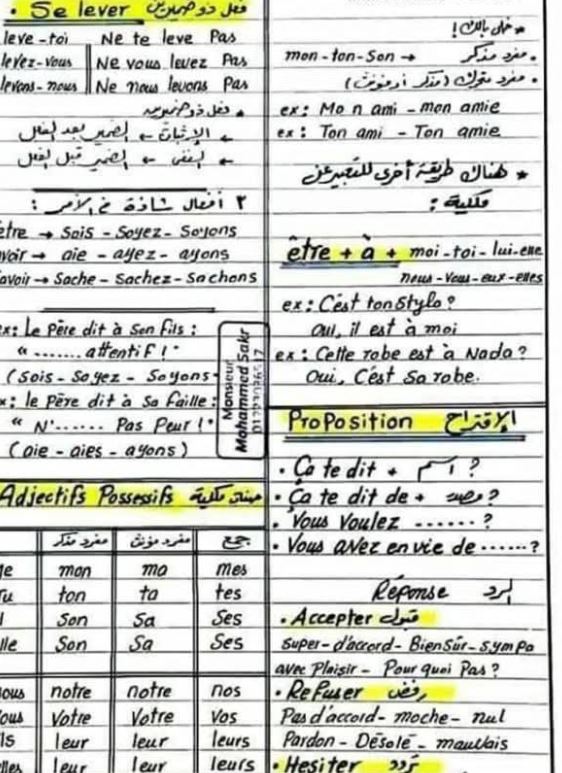 • Se lever فعل ذو ضميرين
leve-toi Ne te leve Pas
levez-vous Ne vous levez Pas
levons-nous Ne nous levons Pas
• فعل ذو ضميرين
← الإثبات ← الضمير بعد الفعل
← النفى ← الضمير قبل الفعل
٣ أفعال شاذة فى الأمر:
être → Sois - Soyez - Soyons
avoir → aie - ayez - ayons
savoir → Sache - Sachez - Sachons
ex: Le Père dit à Son fils :
" ....... attentif ! "
(Sois - Soyez - Soyons)
ex: le Père dit à Sa faille :
" N'...... Pas Peur ! "
(aie - aies - ayons)
Monsieur
Mohammed Sakr
Adjectifs Possessifs صفات ملكية
مفرد مذكر مفرد مؤنث جمع
je mon ma mes
Tu ton ta tes
il Son Sa Ses
elle Son Sa Ses
nous notre notre nos
vous Votre Votre Vos
ils leur leur leurs
elles leur leur leurs
* خلى بالك!
• مفرد مذكر
mon-ton-Son →
• مفرد متحرك (مذكر أو مؤنث)
ex: Mon ami - mon amie
ex: Ton ami - Ton amie
* هناك طريقة أخرى للتعبير عن
ملكية :
être + à + moi-toi-lui-elle
nous-Vous-eux-elles
ex: C'est ton Stylo ?
Oui, il est à moi
ex: Cette robe est à Nada ?
Oui, C'est Sa robe.
ProPosition الإقتراح
• Ça te dit + اسم ?
• Ça te dit de + مصدر ?
• Vous Voulez ....... ?
• Vous avez envie de ...... ?
Réponse الرد
• Accepter قبول
Super - d'accord - Bien Sûr - Sympa
avec Plaisir - Pour quoi Pas ?
• Refuser رفض
Pas d'accord - moche - nul
Pardon - Désolé - mauvais
• Hesiter تردد